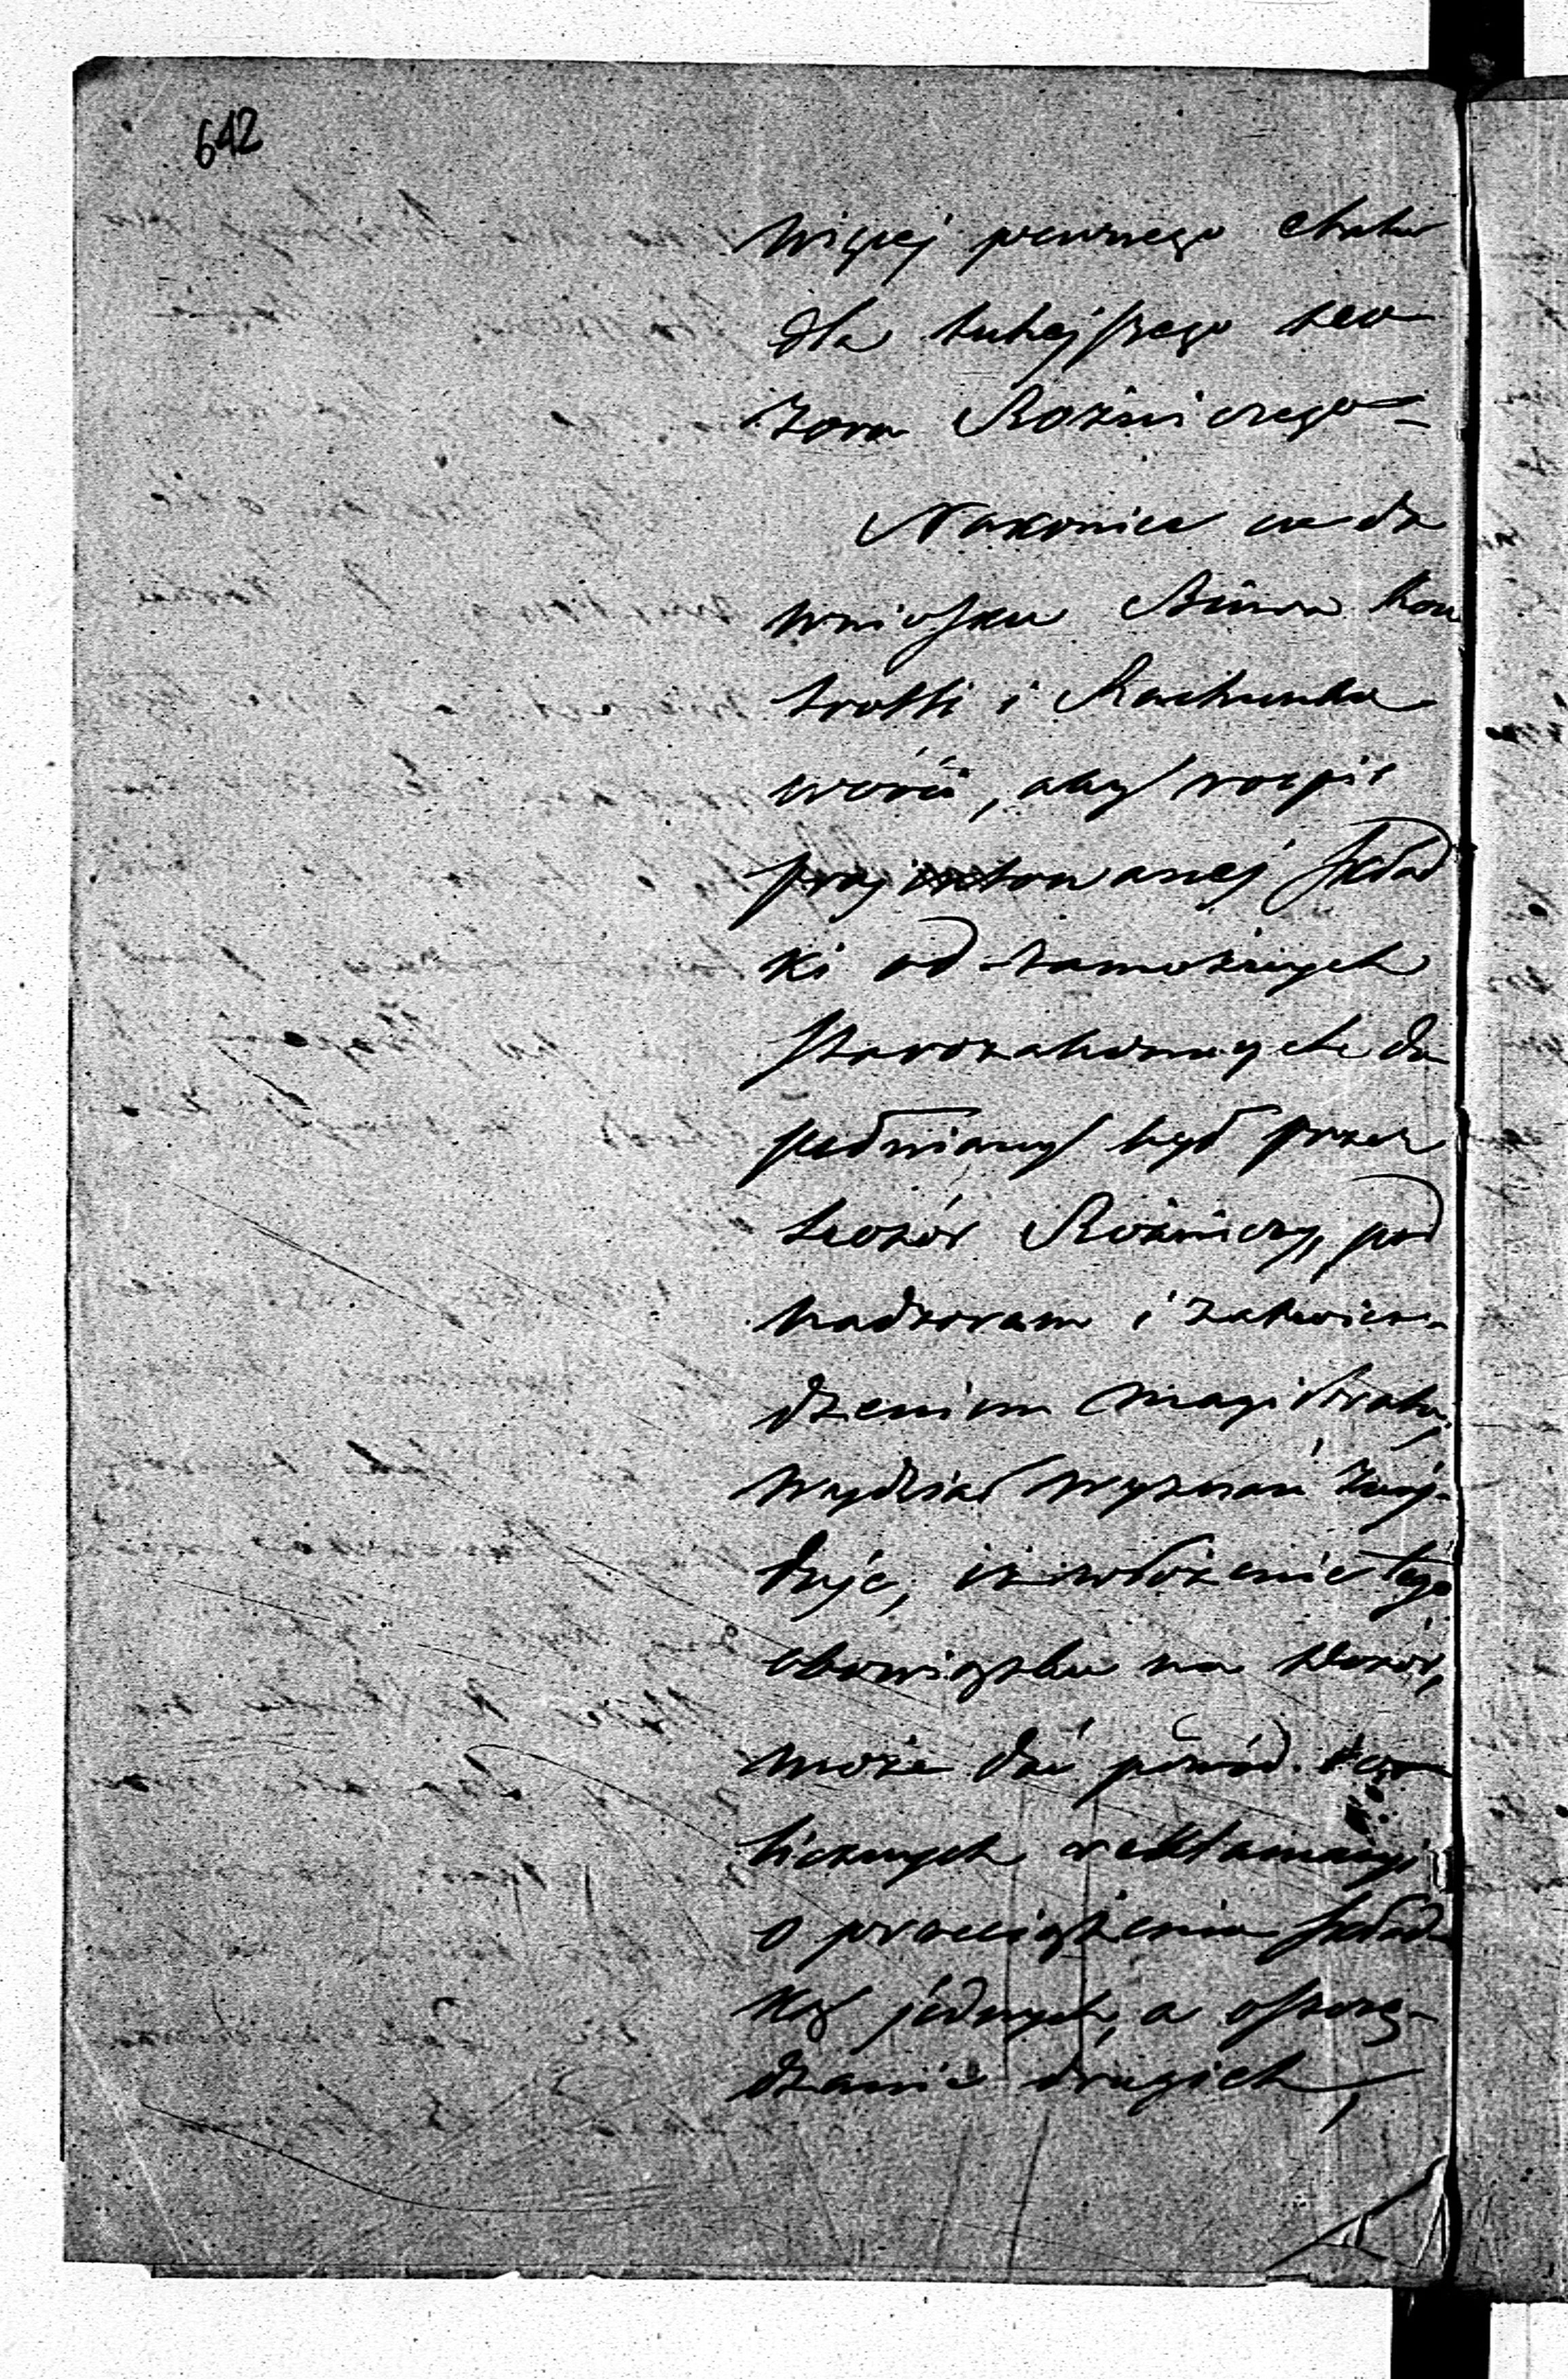 642
więcej pewnego etatu
dla tutejszego Do
zoru Bożniczego
Nakoniec co do
wniosku Biura Kon
trolli i Rachunko
wości, aby rozpis
projektowanej skład
ki od zamożnych
starozakonnych do
pełniany był przez
Dozór Bożniczy, pod
nadzorem i zatwier-
dzeniem Magistratu,
Wydział Wyznań znaj-
duje, iż włożenie tego
obowiązku na Dozór,
może dać powód do
licznych reklamacyi
o przeciążenie skład
ką jednych, a oszczę-
dzanie drugich,